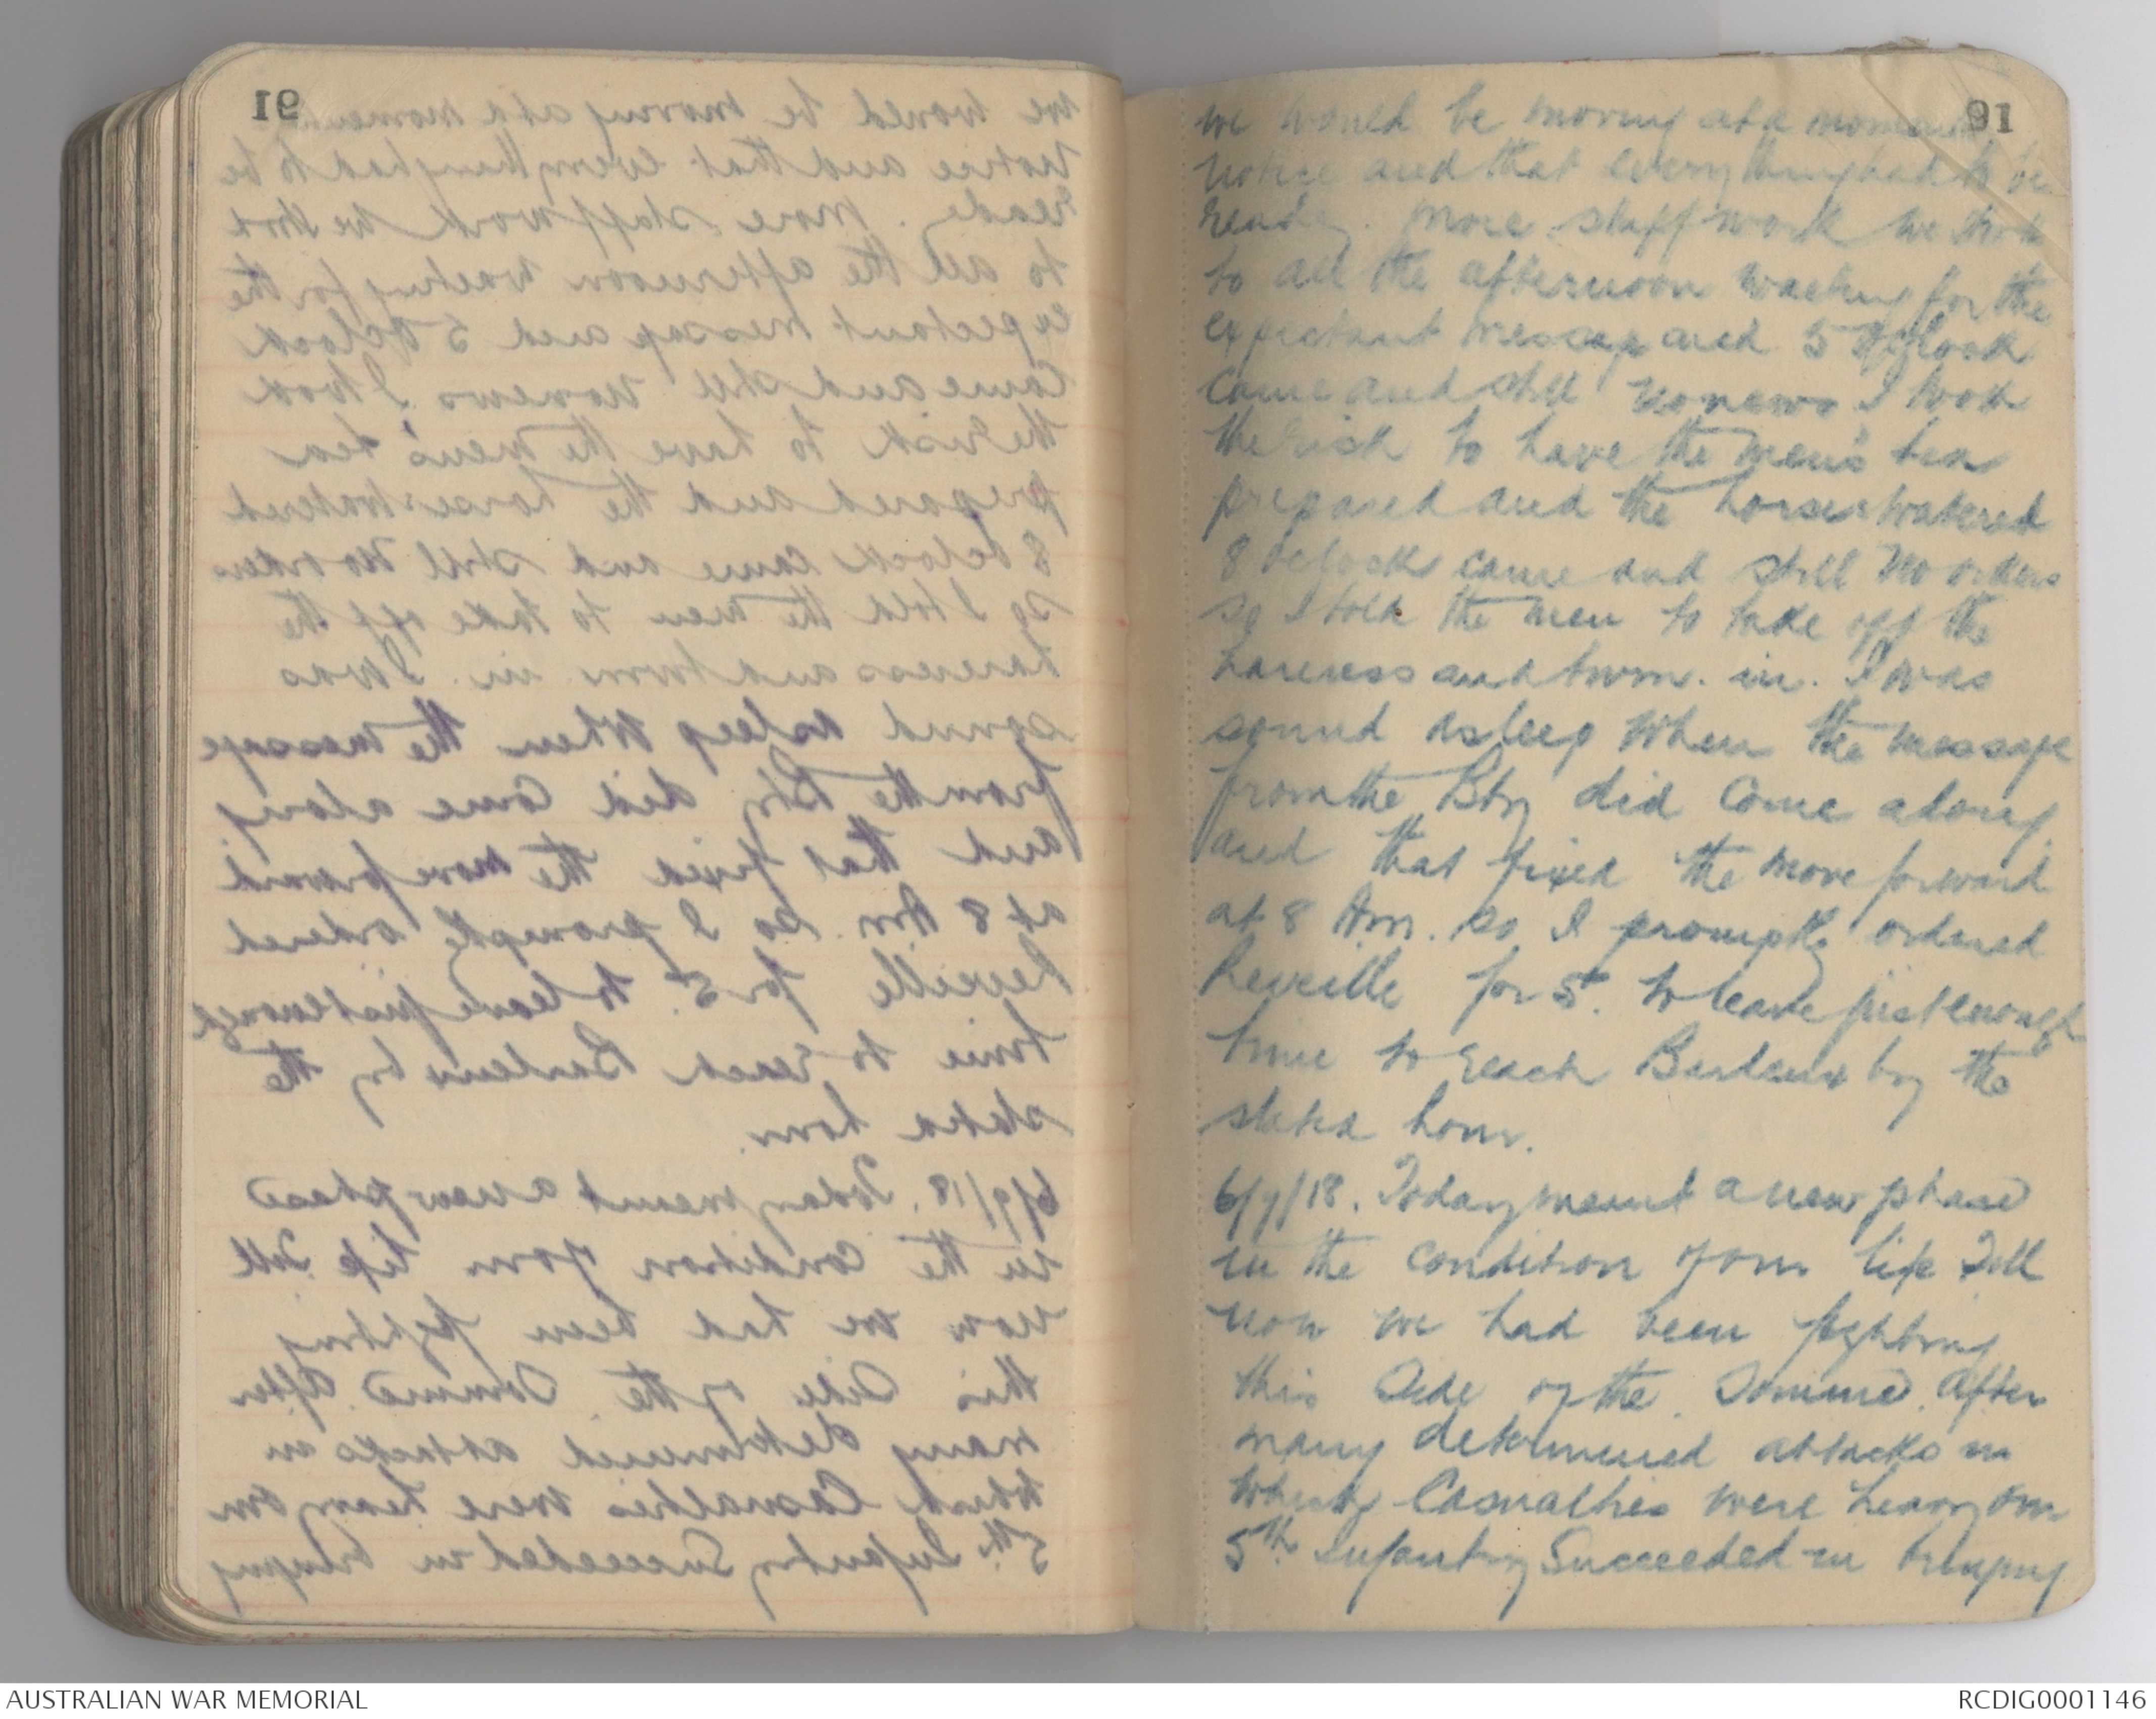 91
we would be moving at a moments
notice and that everything had to be
ready. More staff work we stook
to all the afternoon waiting for the
expectant message and 5 Oclock
came and still no news. I took
the risk to have the men's tea
prepared and the horses watered
8 oclock came and still no orders
so I told the men to take off the
harness and turn in. I was
sound asleep when the message
from the Bty did come along
and that fixed the move forward
at 8 Am. so I promptly ordered
Reveille for 5. to leave just enough
time to reach Barleux by the
stated hour.
6/9/18. Today meant a new phase
in the condition of our life Till
now we had been fighting
this side of the Somme. After
many determined attacks in
which Casualties were heavy our
5th Infantry Succeeded in bringing
AUSTRALIAN WAR MEMORIAL
RCDIG0001146